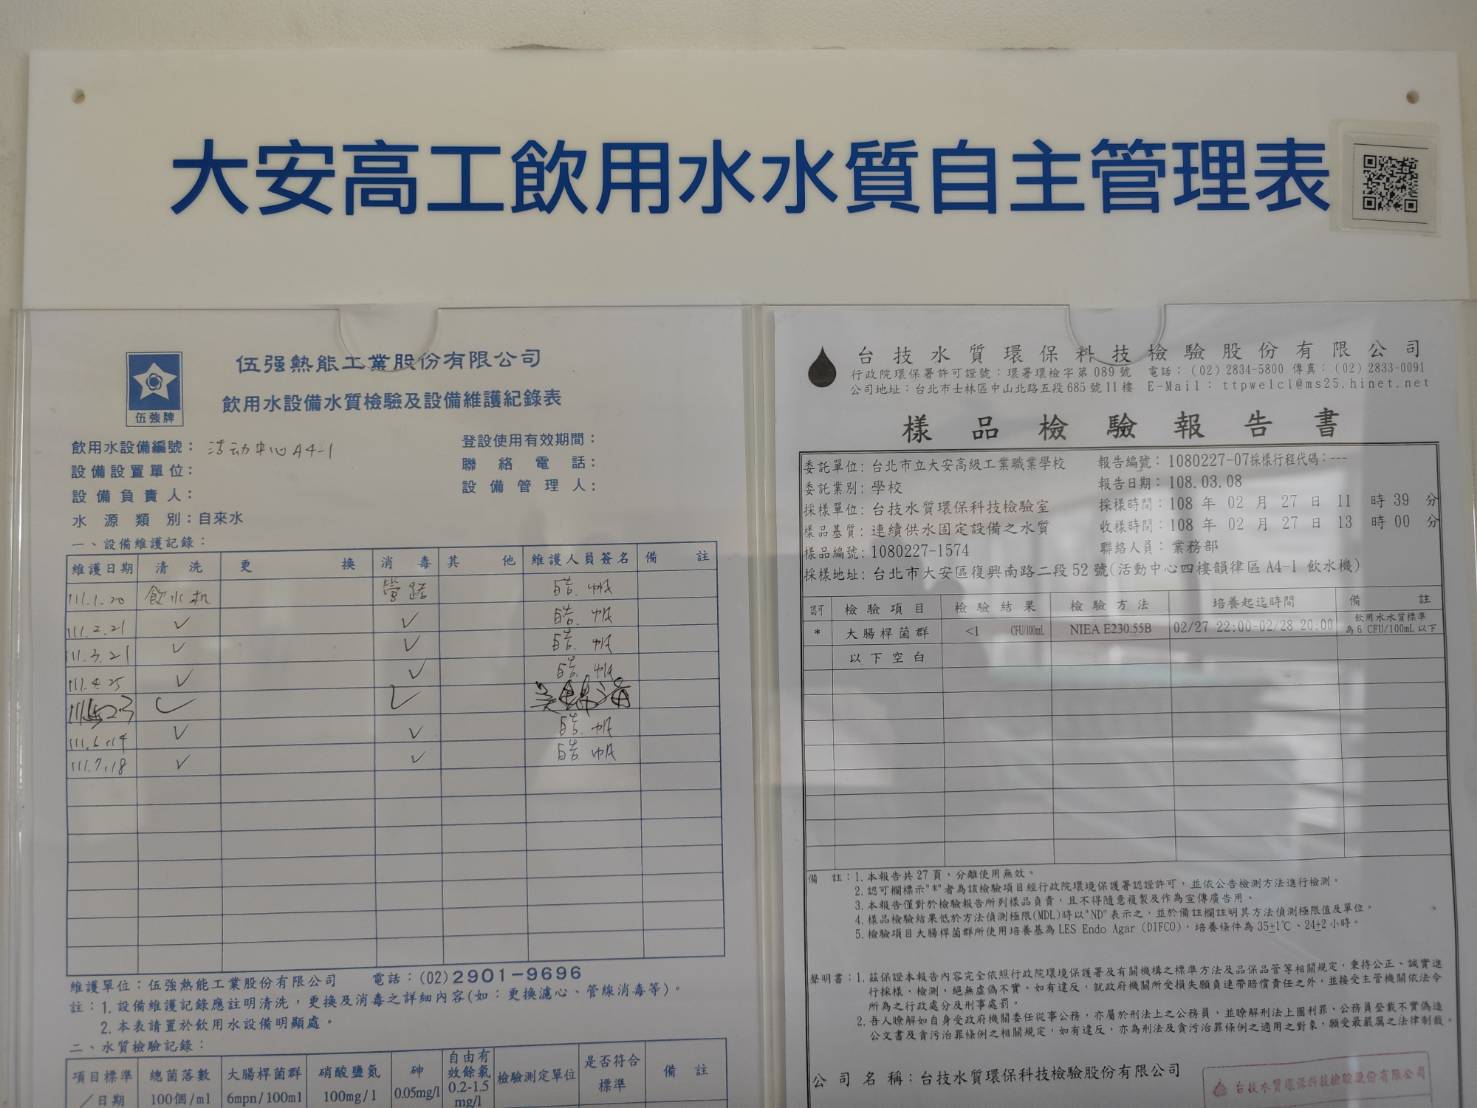 大安高工飲用水水質自主管理表
伍強牌
伍强熱能工業股份有限公司
飲用水設備水質檢驗及設備維護紀錄表
飲用水設備編號：活动中心A4-1
登設使用有效期間：
設備設置單位：
聯絡電話：
設備負責人：
設備管理人：
水源類別：自來水
一、設備維護記錄：
維護日期 清洗 更換 消毒 其他 維護人員簽名 備註
111.1.20 飲水机 管路
111.2.21 ✓ ✓
111.3.21 ✓ ✓
111.4.25 ✓ ✓
✓ ✓
111.6.14 ✓ ✓
111.7.18 ✓ ✓
維護單位：伍強熱能工業股份有限公司 電話：(02)2901-9696
註：1.設備維護記錄應註明清洗，更換及消毒之詳細內容(如：更換濾心、管線消毒等)。
2.本表請置於飲用水設備明顯處。
二、水質檢驗記錄：
項目標準／日期 總菌落數 100個/ml 大腸桿菌群 6mpn/100ml 硝酸鹽氮 100mg/l 砷 0.05mg/l 自由有效餘氯 0.2-1.5 mg/l 檢驗測定單位 是否符合標準 備註
台技水質環保科技檢驗股份有限公司
行政院環保署許可證號：環署環檢字第089號 電話：(02)2834-5800 傳真：(02)2833-0091
公司地址：台北市士林區中山北路五段685號11樓 E-Mail：ttpwelcl@ms25.hinet.net
樣品檢驗報告書
委託單位：台北市立大安高級工業職業學校 報告編號：1080227-07採樣行程代碼：---
委託業別：學校 報告日期：108.03.08
採樣單位：台技水質環保科技檢驗室 採樣時間：108年02月27日11時39分
樣品基質：連續供水固定設備之水質 收樣時間：108年02月27日13時00分
樣品編號：1080227-1574 聯絡人員：業務部
採樣地址：台北市大安區復興南路二段52號(活動中心四樓韻律區A4-1 飲水機)
認可 檢驗項目 檢驗結果 檢驗方法 培養起迄時間 備註
* 大腸桿菌群 <1 CFU/100mL NIEA E230.55B 02/27 22:00-02/28 20:00 飲用水水質標準為6 CFU/100mL以下
以下空白
備註：1.本報告共27頁，分離使用無效。
2.認可欄標示"*"者為該檢驗項目經行政院環境保護署認證許可，並依公告檢測方法進行檢測。
3.本報告僅對於檢驗報告所列樣品負責，且不得隨意複製及作為宣傳廣告用。
4.樣品檢驗結果低於方法偵測極限(MDL)時以"ND"表示之，並於備註欄註明其方法偵測極限值及單位。
5.檢驗項目大腸桿菌群所使用培養基為LES Endo Agar (DIFCO)，培養條件為35±1℃、24±2小時。
聲明書：1.茲保證本報告內容完全依照行政院環境保護署及有關機構之標準方法及品保品管等相關規定，秉持公正、誠實進
行採樣、檢測，絕無虛偽不實，如有違反，就政府機關所受損失願負連帶賠償責任之外，並接受主管機關依法令
所為之行政處分及刑事處罰。
2.吾人瞭解如自身受政府機關委任從事公務，亦屬於刑法上之公務員，並瞭解刑法上圖利罪、公務員登載不實偽造
公文書及貪污治罪條例之相關規定，如有違反，亦為刑法及貪污治罪條例之適用之對象，願受最嚴厲之法律制裁。
公司名稱：台技水質環保科技檢驗股份有限公司
台技水質環保科技檢驗股份有限公司